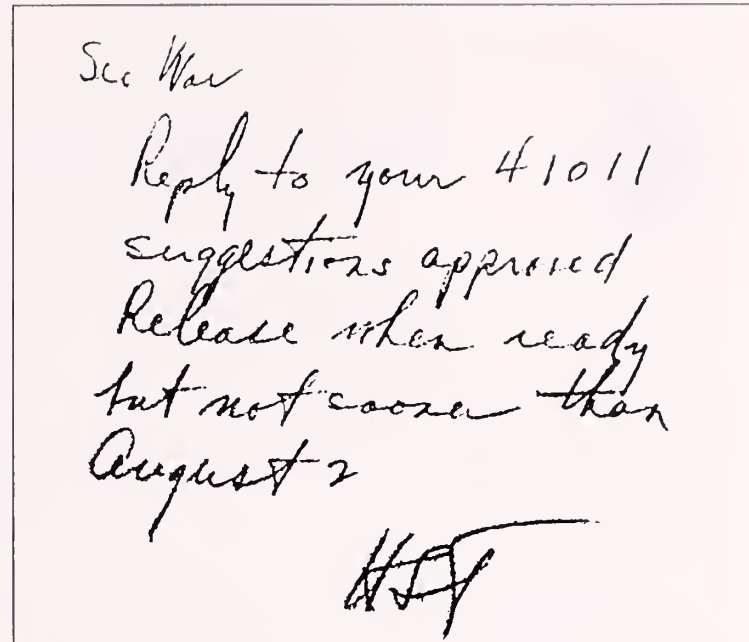 Sec War
Reply to your 41011
suggestions approved
Release when ready
but not sooner than
August 2
HST